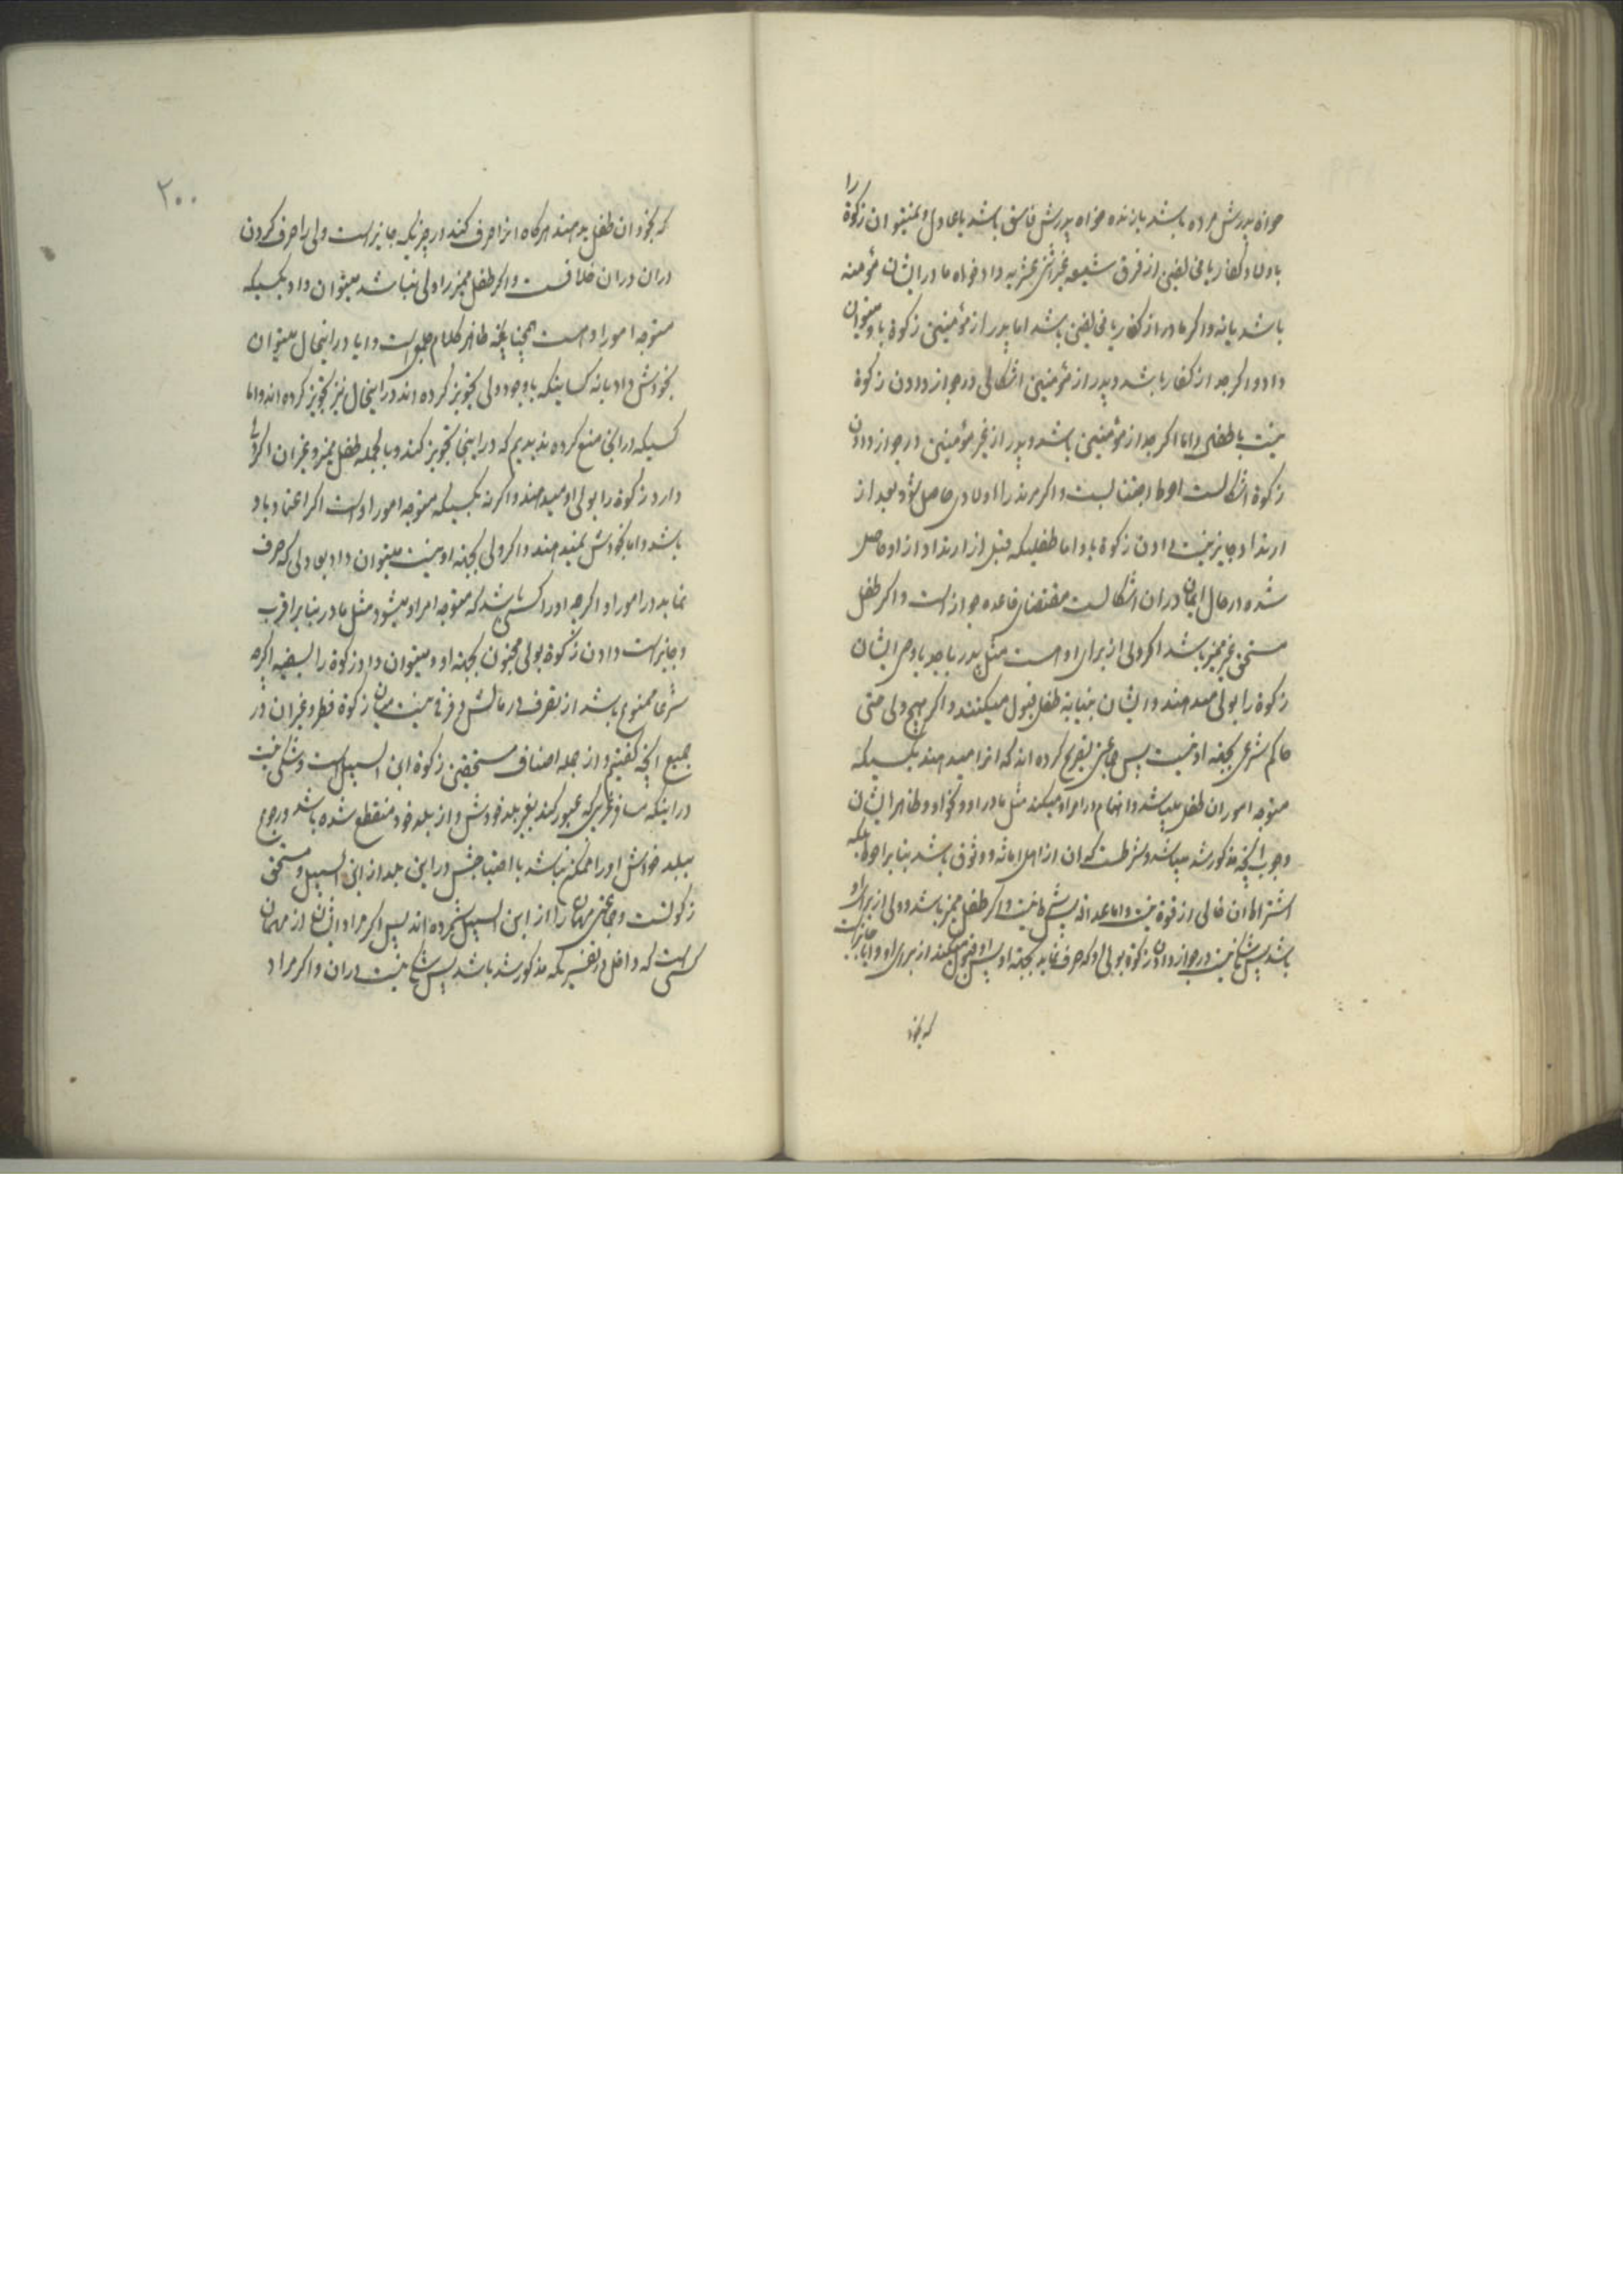 خواه پدرش مرده باشد یا زنده خواه پدرش فاسق باشد یا عادل و نمیتوان زکوة را
باولاد کفار یا مخالفین از فرق شیعه غیر اثنی عشریه داد خواه مادر ایشان مؤمنه
باشد یا نه و اکر مادر از کفار یا مخالفین باشد اما پدر از مؤمنین زکوة باو میتوان
داد و اکر جد از کفار باشد و پدر از مؤمنین اشکالی در جواز دادن زکوة
نیست باطفال و اما اکر جد از مؤمنین باشد و پدر از غیر مؤمنین در جواز دادن
زکوة اشکالست احوط اجتنابست و اکر مرتد را اولادی حاصل شود بعد از
ارتداد جایز نیست دادن زکوة باو و اما طفلیکه قبل از ارتداد از او حاصل
شده در حال ایمان دران اشکالست مقتضای قاعده جواز است و اکر طفل
مستحق غیر ممیز باشد اکر ولی از برای او هست مثل پدر یا جد یا وصی ایشان
زکوة را بولی میدهند و ایشان بنیابة طفل قبول میکنند و اکر هیچ ولی حتی
حاکم شرعی بجهة او نیست پس جماعتی تصریح کرده اند که انرا میدهند بکسیکه
متوجه امور ان طفل میباشد و اهتمام در امر او میکند مثل مادر او و نحو او و ظاهر ایشان
وجوب انچه مذکور شد میباشد و شرطست که ان از اهل امانة و وثوق باشد بنا بر احوط بلکه
اشتراط ان خالی از قوة نیست و اما عدالة پس شرط نیست و اکر طفل ممیز باشد و ولی از برای او
باشد پس شکی نیست در جواز دادن زکوة بولی او که صرف نماید بجهة او پس او قبول میکند از برای او و ایا جایز است
که بخود
۲۰۰
که بخود ان طفل بدهند هرکاه انرا صرف کند در چیزیکه جایز است ولی را صرف کردن
دران دران خلافست و اکر طفل ممیز را ولی نباشد میتوان داد بکسیکه
متوجه امور او هست همچنانچه ظاهر کلام جمعی است و ایا در اینحال میتوان
بخودش داد یا نه کسانیکه با وجود ولی تجویز کرده اند در اینحال نیز تجویز کرده اند و اما
کسیکه در انجا منع کرده ندیدیم که در اینجا تجویز کند و بالجمله طفل ممیز و غیر ان اکر ولی
دارد زکوة را بولی او میدهند و اکر نه بکسیکه متوجه امور اوست اکر اعتماد باو
باشد و اما بخودش نمیدهند و اکر ولی بجهة او نیست میتوان داد بعدولی که صرف
نماید در امور او اکرچه او را کسی باشد که متوجه امر او میشود مثل مادر بنا بر اقرب
و جایز است دادن زکوة بولی مجنون بجهة او و میتوان داد زکوة را بسفیه اکرچه
شرعا ممنوع باشد از تصرف در مالش و فرقی نیست میان زکوة فطر و غیر ان در
جمیع انچه کفتیم و از جمله اصناف مستحقین زکوة ابن السبیل است و شکی نیست
در اینکه مسافر غریبی که عبور کند بغیر بلد خودش و از بلد خود منقطع شده باشد و رجوع
ببلد خودش او را ممکن نباشد با احتیاجش در این بلد از ابن السبیل و مستحق
زکوتست و جماعتی مهمان را از ابن السبیل شمرده اند پس اکر مراد ایشان از مهمان
کسی است که داخل در تفسیریکه مذکور شد باشد پس شکی نیست دران و اکر مراد